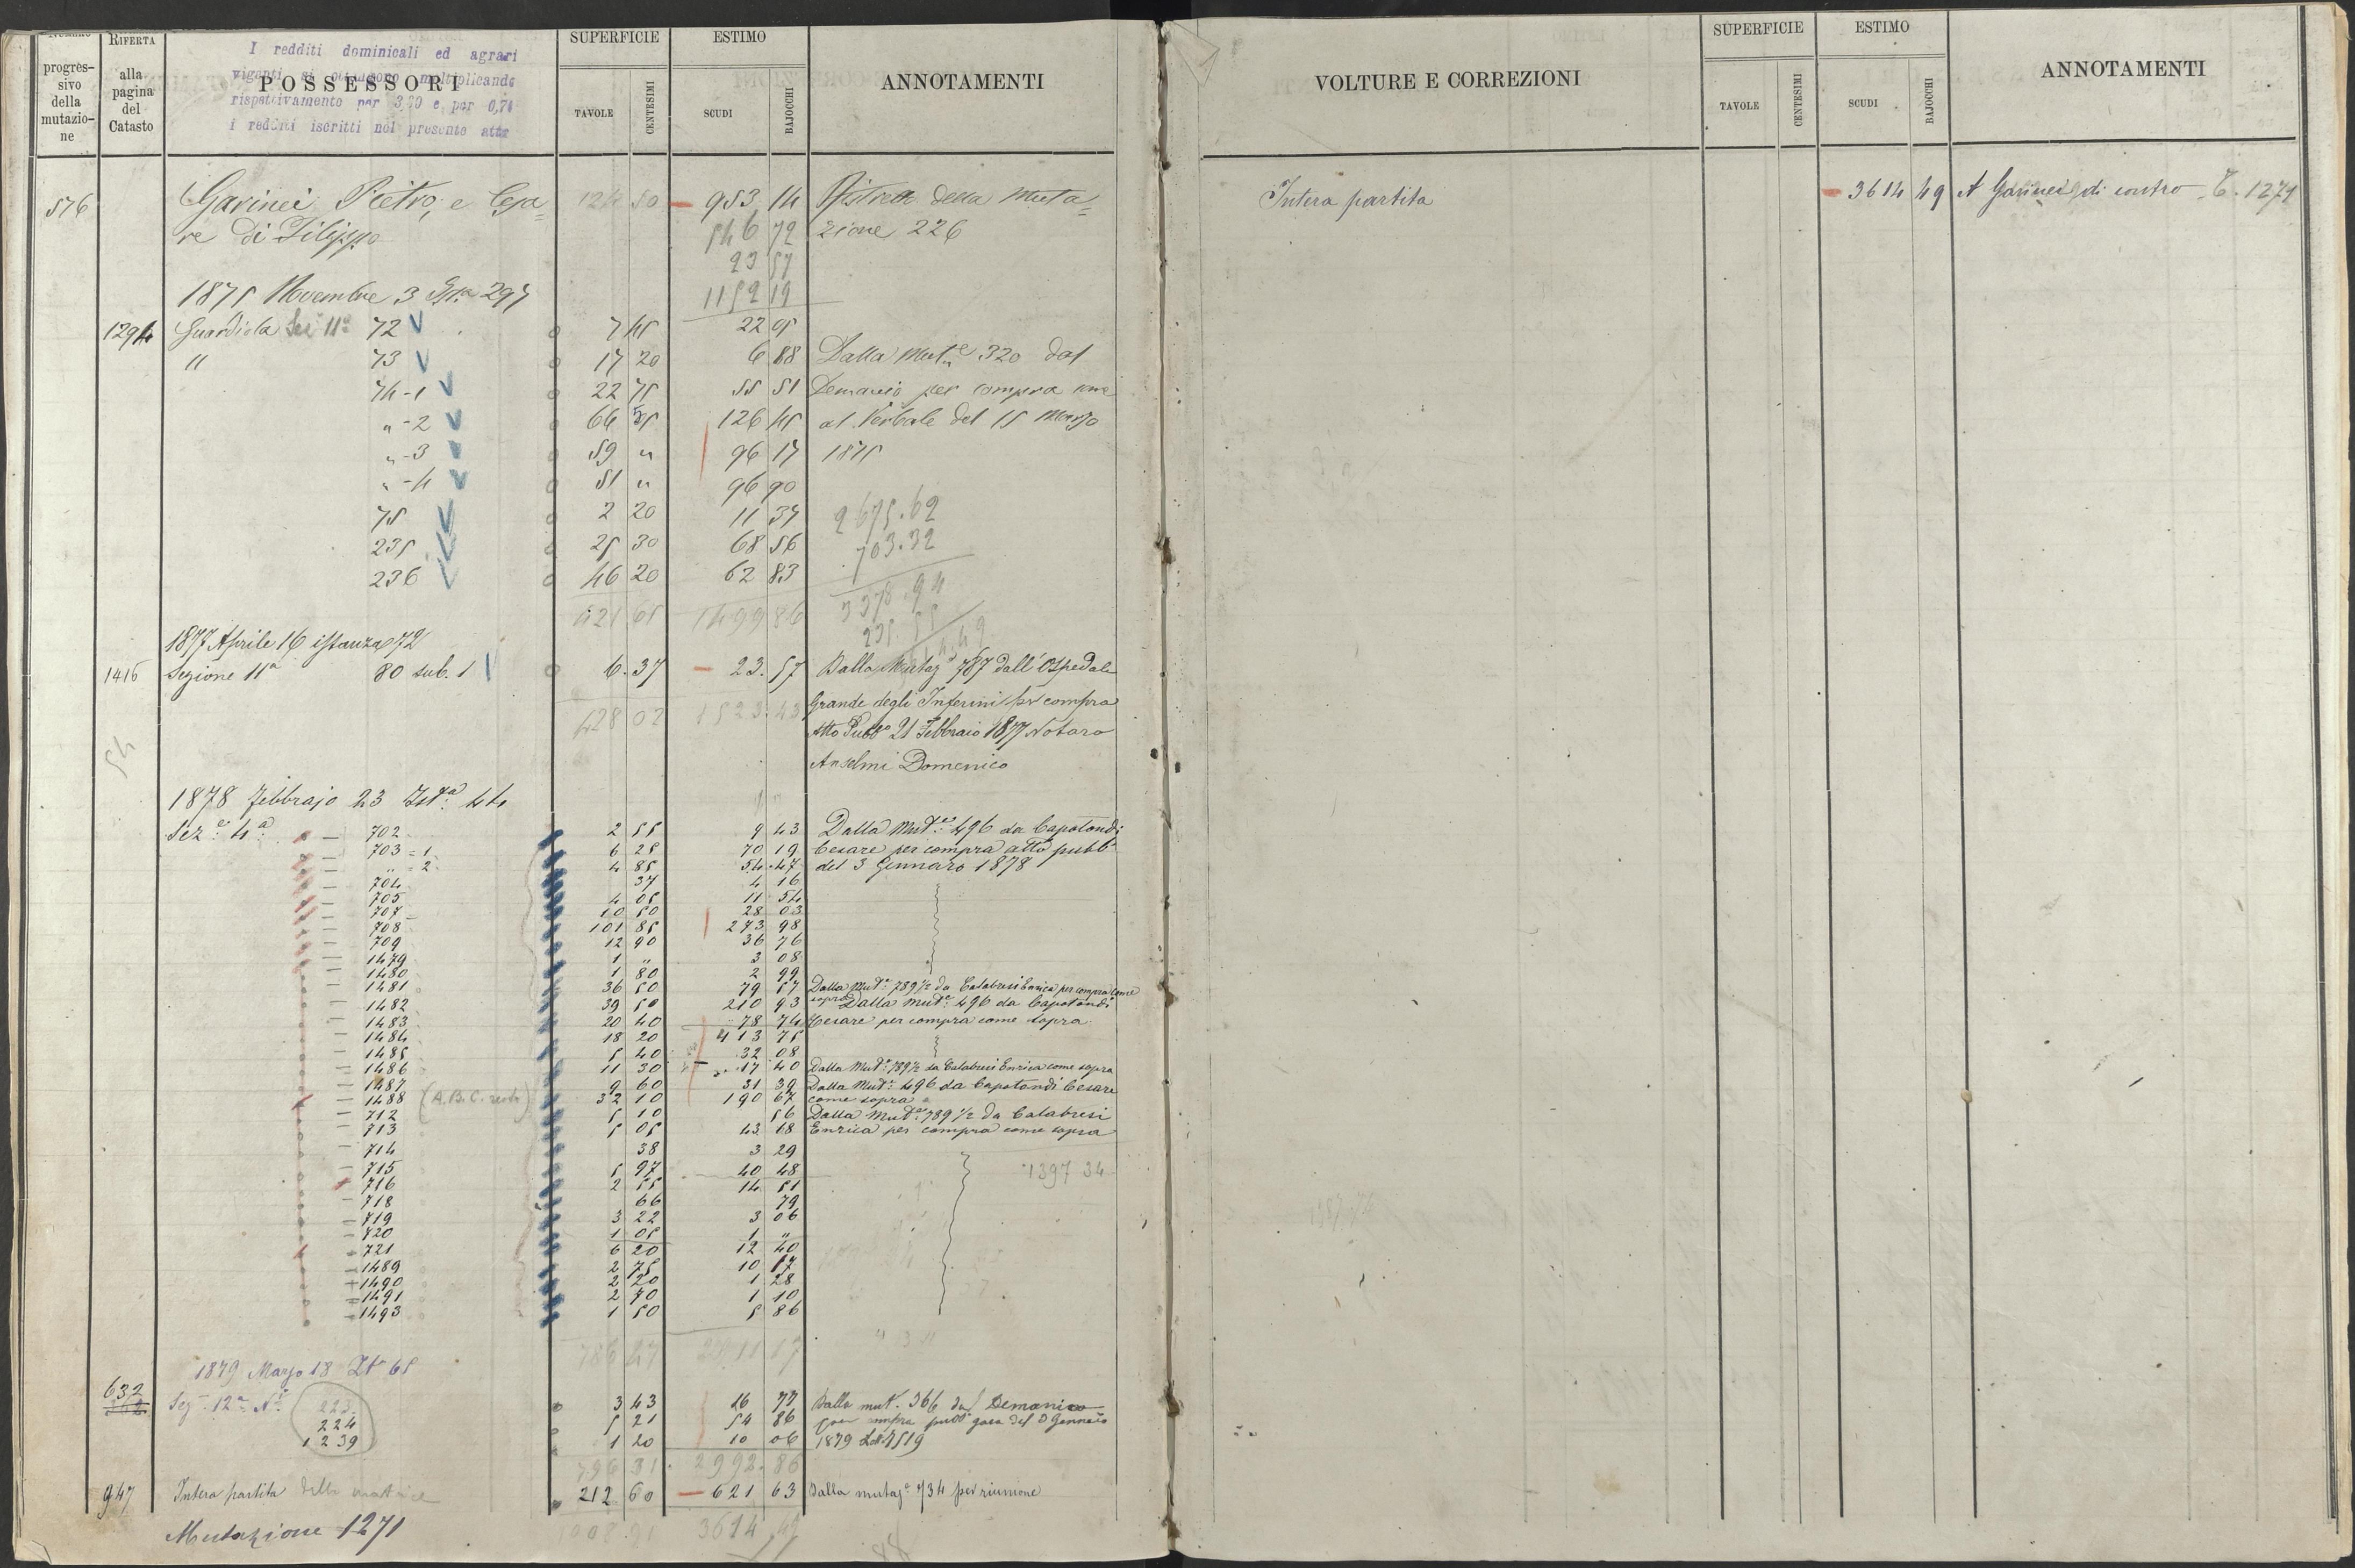 progressivo della mutazione
RIFERTA alla pagina del Catasto
I redditi dominicali ed agrari
vigenti si moltiplicando
rispettivamente per 3,20 e per 0,74
i redditi iscritti nel presente atto
POSSESSORI
SUPERFICIE
TAVOLE CENTESIMI
ESTIMO
SCUDI BAJOCCHI
ANNOTAMENTI
576 Garinei Pietro, e Cesa= 124 50 — 953 14 Ristretto della Muta=
re di Filippo 546 72 zione 226
23 57
1875 Novembre 3 297 1152 19
1294 Guardiola Sez. 11a 72 7 45 22 05
" 73 17 20 6 88 Dalla Mutne 320 dal
74-1 22 75 55 51 Demanio per compra come
" -2 66 55 126 45 al Verbale del 15 Marzo
" -3 59 " 96 17 1875
" -4 51 " 96 90
75 2 20 11 37 2675.62
235 25 30 68 56 703.32
236 46 20 62 83
421 65 1499 86 3378.94
235 55
1877 Aprile 16 istanza 72
1416 Sezione 11a 80 sub. 1 6.37 — 23.57 Dalla Mutaze 787 dall'Ospedale
Grande degli Infermi per compra
428 02 1523.43 Atto Pubbo 21 Febbraio 1877 Notaro
Anselmi Domenico
54
1878 Febbrajo 23 Istza 44
Seze 4a 702 2 55 9 43 Dalla Mutne 496 da Capotondi
703=1 6 25 70 19 Cesare per compra atto pubb.
" =2 4 85 54.47 del 3 Gennaro 1878
704 37 4 16
705 4 05 11 54
707 10 50 28 03
708 101 85 273 98
709 12 90 36 76
1479 1 " 3 08
1480 1 80 2 99
1481 36 50 79 57 Dalla Mute 789 1/2 da Calabresi Enrica per compra come
1482 39 50 210 93 sopra Dalla Mute 496 da Capotondi
1483 20 40 78 74 Cesare per compra come sopra
1484 18 20 413 75
1485 5 40 32 08
1486 11 30 17 40 Dalla Mute 789 1/2 da Calabresi Enrica come sopra
1487 9 60 31 39 Dalla Mute 496 da Capotondi Cesare
1488 (A.B.C. resto) 32 10 190 67 come sopra
712 5 10 56 Dalla Mute 789 1/2 da Calabresi
713 5 05 43 18 Enrica per compra come sopra
714 38 3 29
715 5 97 40 48 1397 34
716 2 55 14 51
718 66 79
719 3 22 3 06
720 1 05 1 "
721 6 20 12 40
1489 2 75 10 17
1490 2 20 1 28
1491 2 70 1 10
1493 1 50 5 86
786 47 2911 17
1879 Marzo 18 Ita 65
632 Seze 12a Ni 223 3 43 16 77 Dalla mut. 366 dal Demanio
224 5 21 54 86 per compra del 9 Gennaio
1239 1 20 10 06 1879
796 31 2992.86
947 Intera partita della matrice 212 60 — 621 63 Dalla mutaze 734 per riunione
Mutazione 1271 1008.91 3614 49
88
VOLTURE E CORREZIONI
SUPERFICIE
TAVOLE CENTESIMI
ESTIMO
SCUDI BAJOCCHI
ANNOTAMENTI
Intera partita — 3614 49 A Garinei di contro C. 1271